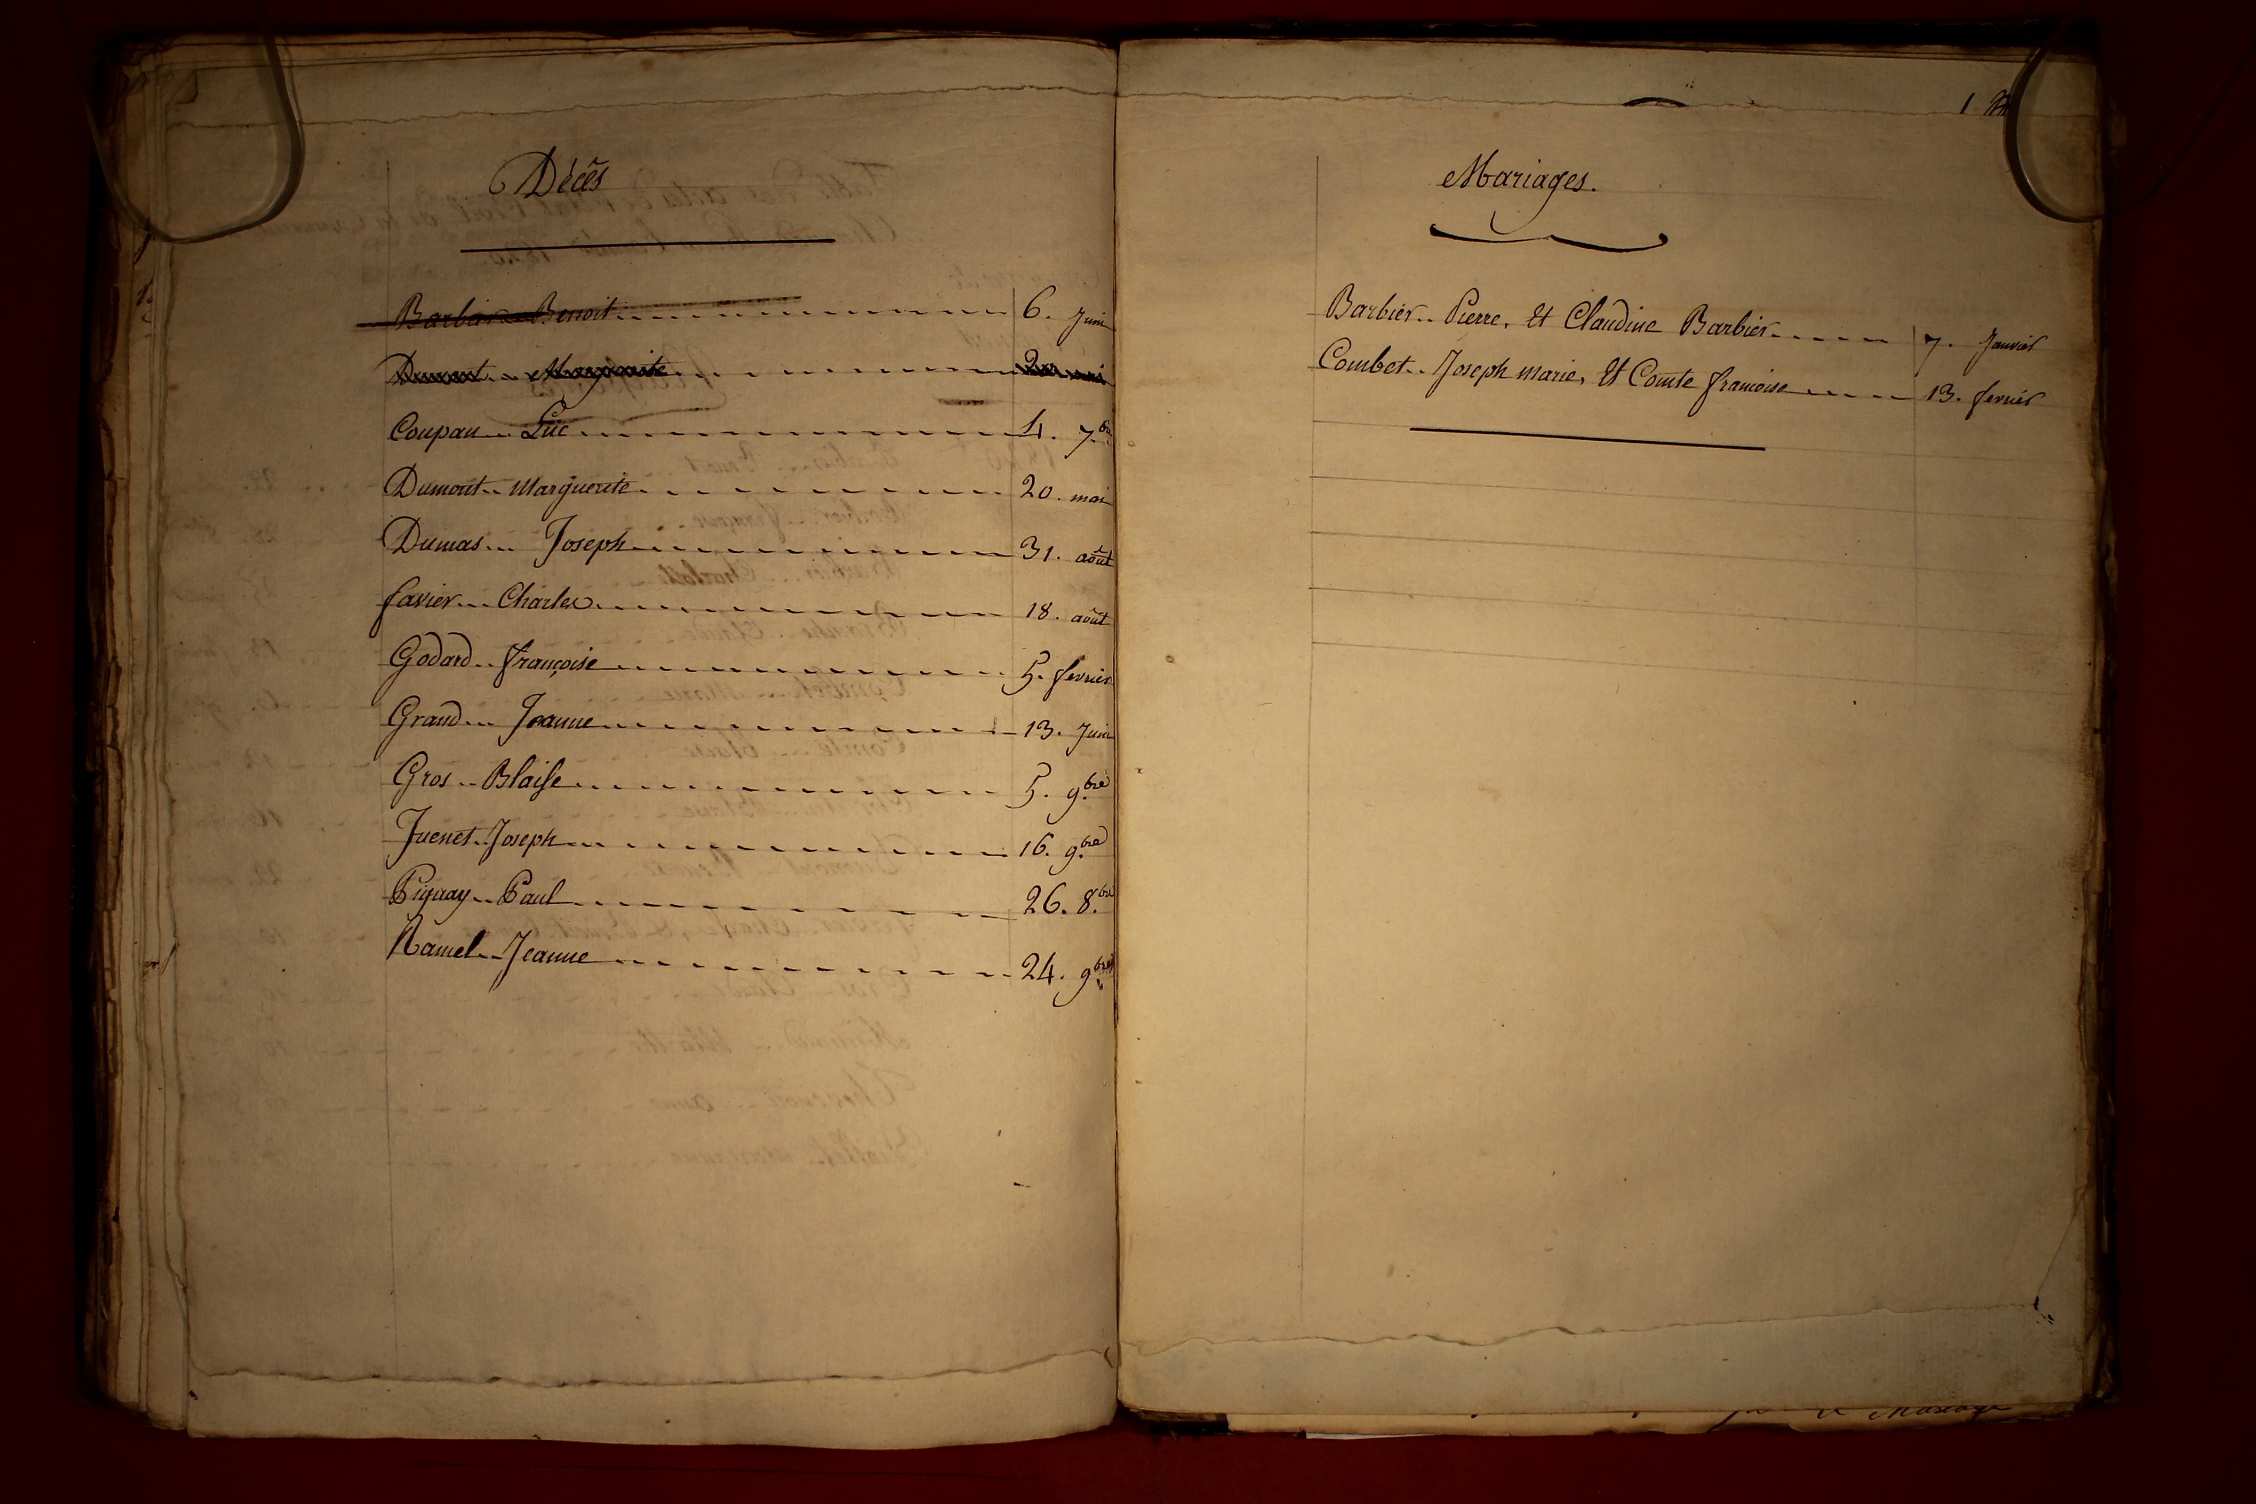 Décès
Barbier Benoit 6. Juin
Dumont Marguerite 20 mai
Coupau Luc 4. 7.bre
Dumont Marguerite 20. mai
Dumas Joseph 31. août
favier Charles 18. août
Godard françoise 5. fevrier
Grand Jeanne 13. Juin
Gros Blaise 5. 9.bre
Juenet Joseph 16. 9.bre
Piquay Paul 26. 8.bre
Ramel Jeanne 24. 9.bre
Mariages.
Barbier Pierre, Et Claudine Barbier 7. Janvier
Combet Joseph marie, Et Comte francoise 13. fevrier